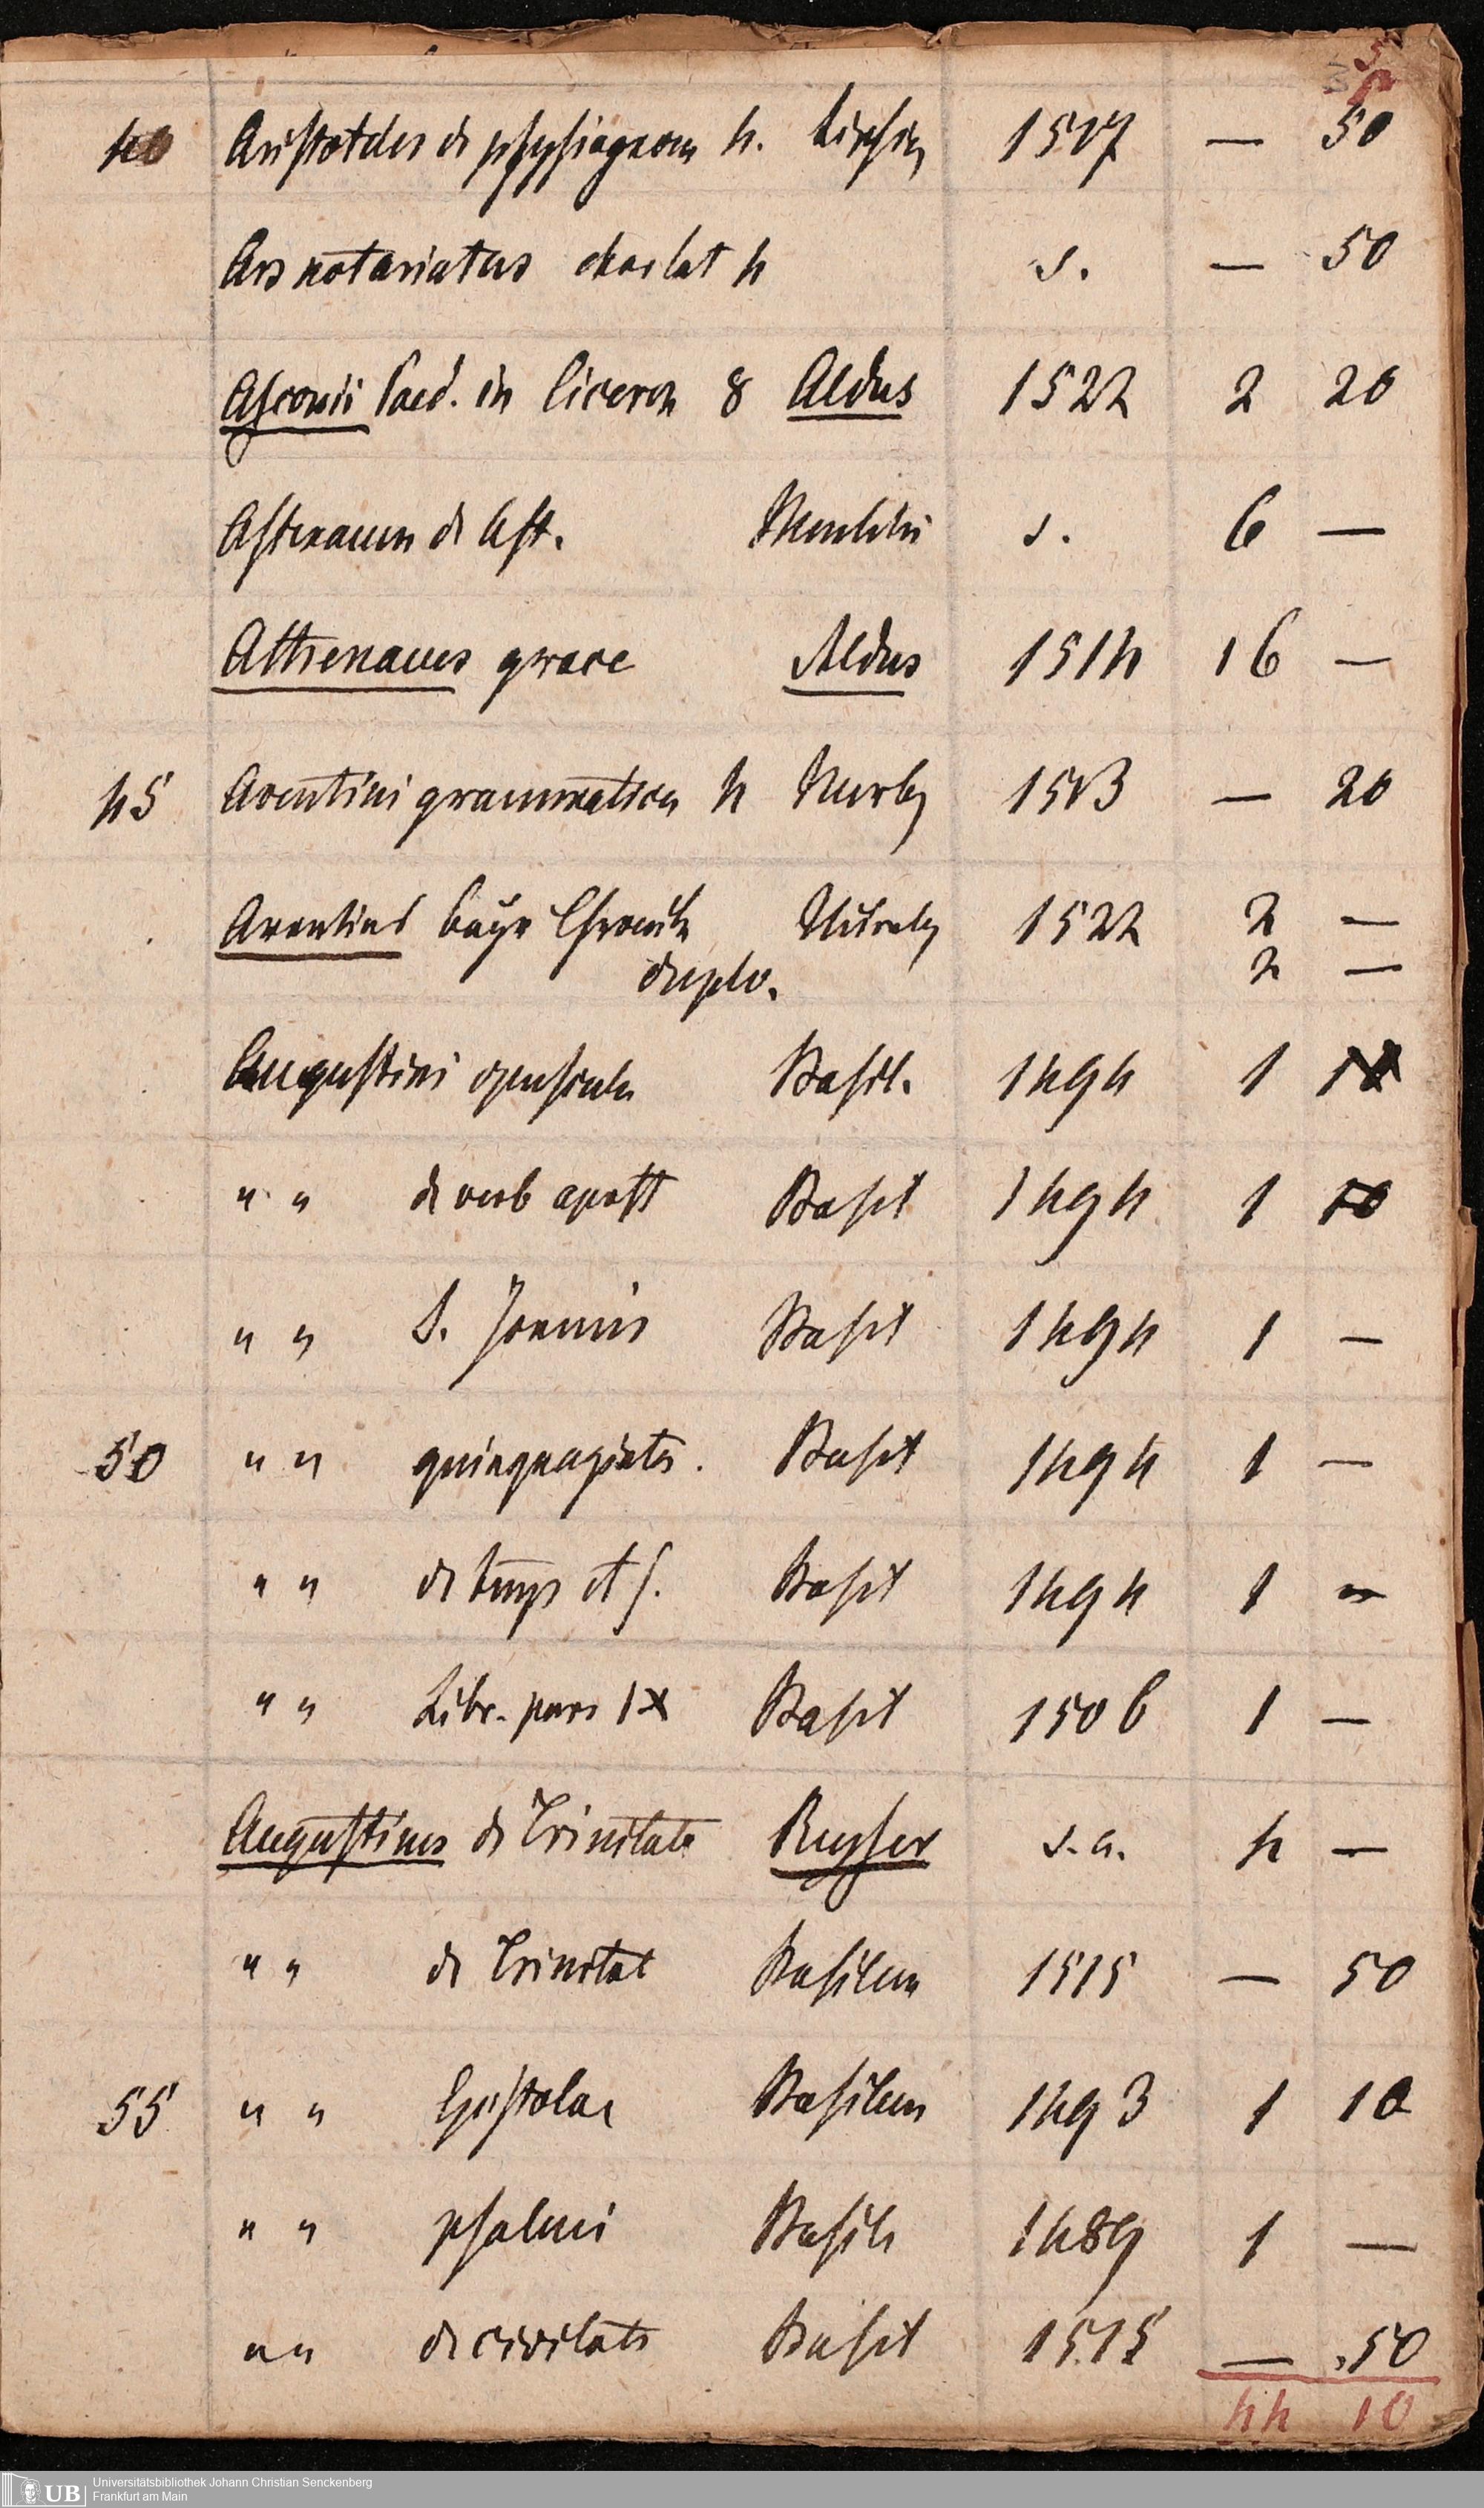 5
40 Aristoteles de physiognom 4. Lipsie 1517 — 50
Ars notariatus 4 s. — 50
Asconii Paed. in Ciceron 8 Aldus 1522 2 20
Astexanus de Ast. Mentelin s. 6 —
Athenaeus graece Aldus 1514 16 —
45 Aventini grammatica 4 Nurbg 1513 — 20
Aventinus bayr Chronik Nürnbg 1522 2 —
duplo. 2 —
Augustini opuscula Basil. 1494 1 10
" " de verb apost Basil 1494 1 10
" " S. Joannis Basil 1494 1 —
50 " " quinquagints. Basil 1494 1 —
" " de temp et s. Basil 1494 1 —
" " Libr. pars IX Basil 1506 1 —
Augustinus de Trinitate Reyser s.a. 4 —
" " de Trinitat Basileae 1515 — 50
55 " " Epistolae Basileae 1493 1 10
" " psalmi Basile 1489 1 —
" " de civitate Basil 1515 — 50
44 10
UB Universitätsbibliothek Johann Christian Senckenberg
Frankfurt am Main